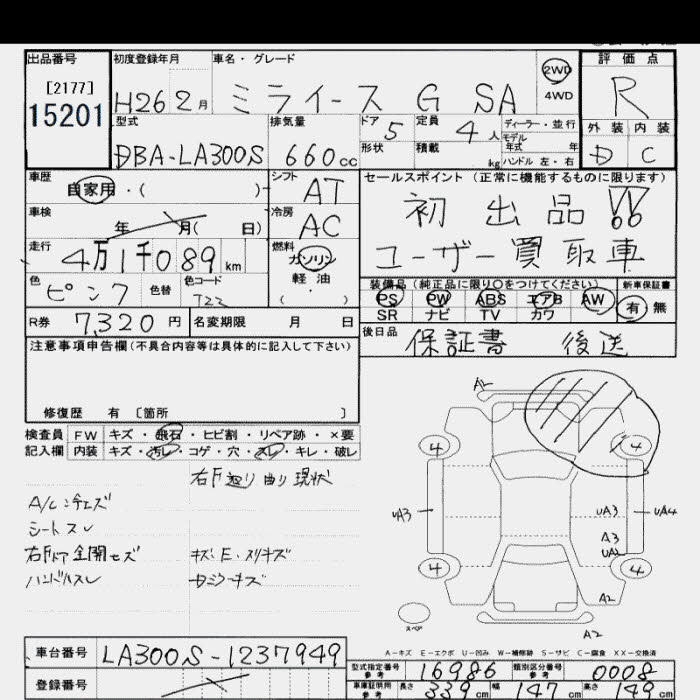 出品番号
[2177]
15201
初度登録年月
H26 2月
車名・グレード
ミライース G SA
2WD
4WD
評価点
R
外装 内装
D C
型式
DBA-LA300S
排気量
660cc
ドア
5
定員
4人
ディーラー・並行
モデル
年式 年
形状
積載 kg
ハンドル 左・右
車歴
自家用・( )
シフト
AT
車検
年 月( 日)
冷房
AC
走行
4万1千089km
燃料
ガソリン
軽油
( )
色
ピンク
色替
色コード
T22
R券 7,320円
名変期限 月 日
セールスポイント (正常に機能するものに限ります)
初出品!!
ユーザー買取車
装備品(純正品に限り〇をつけてください)
PS PW ABS エアB AW
SR ナビ TV カワ
新車保証書
有 無
後日品
保証書 後送
注意事項申告欄(不具合内容等は具体的に記入して下さい)
修復歴 有 〔箇所 〕
検査員
記入欄
FW キズ・飛石・ヒビ割・リペア跡・×要
内装 キズ・汚レ・コゲ・穴・スレ・キレ・破レ
現状
シートスレ
ハンドルスレ
A2
4
4
UA3
UA3
UA4
A3
UA2
4
4
A2
スペア
A2
A-キズ E-エクボ U-凹み W-補修跡 S-サビ C-腐食 XX-交換済
車台番号
LA300S-1237949
登録番号
型式指定番号
参考
16986
類別区分番号
参考
0008
車庫証明用
参考
長さ 339cm 幅 147cm 高さ 149cm